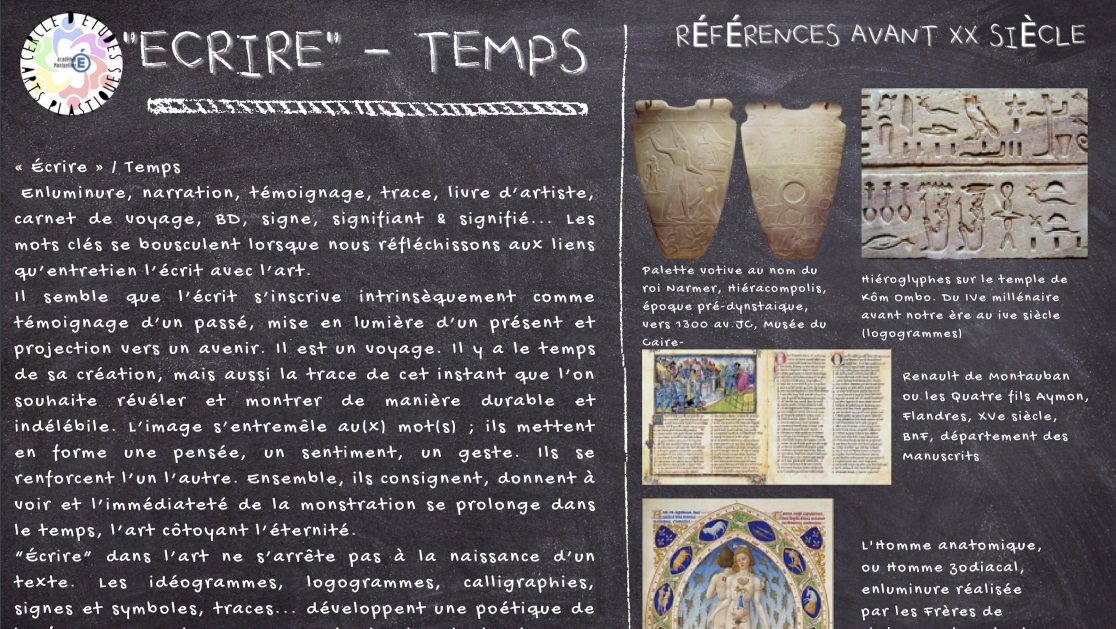 CERCLE D'ETUDES
ARTS PLASTIQUES
académie
Montpellier
"ECRIRE" - TEMPS
« Écrire » / Temps
Enluminure, narration, témoignage, trace, livre d'artiste,
carnet de voyage, BD, signe, signifiant & signifié... Les
mots clés se bousculent lorsque nous réfléchissons aux liens
qu'entretien l'écrit avec l'art.
Il semble que l'écrit s'inscrive intrinsèquement comme
témoignage d'un passé, mise en lumière d'un présent et
projection vers un avenir. Il est un voyage. Il y a le temps
de sa création, mais aussi la trace de cet instant que l'on
souhaite révéler et montrer de manière durable et
indélébile. L'image s'entremêle au(x) mot(s) ; ils mettent
en forme une pensée, un sentiment, un geste. Ils se
renforcent l'un l'autre. Ensemble, ils consignent, donnent à
voir et l'immédiateté de la monstration se prolonge dans
le temps, l'art côtoyant l'éternité.
"Écrire" dans l'art ne s'arrête pas à la naissance d'un
texte. Les idéogrammes, logogrammes, calligraphies,
signes et symboles, traces... développent une poétique de
RÉFÉRENCES AVANT XX SIÈCLE
Palette votive au nom du
roi Narmer, Hiéracompolis,
époque pré-dynstaique,
vers 1300 av.JC, Musée du
Caire-
Hiéroglyphes sur le temple de
Kôm Ombo. Du IVe millénaire
avant notre ère au ive siècle
(logogrammes)
Renault de Montauban
ou les Quatre fils Aymon,
Flandres, XVe siècle,
BnF, département des
Manuscrits
L'Homme anatomique,
ou Homme zodiacal,
enluminure réalisée
par les Frères de